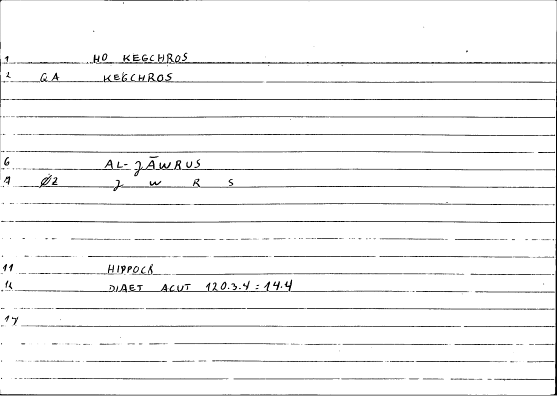 1 HO KEGCHROS
2 QA KEGCHROS
6 AL-ǦĀWRUS
7 Ø2 Ǧ W R S
11 HIPPOCR
12 DIAET ACUT 120.3.4 : 14.4
14